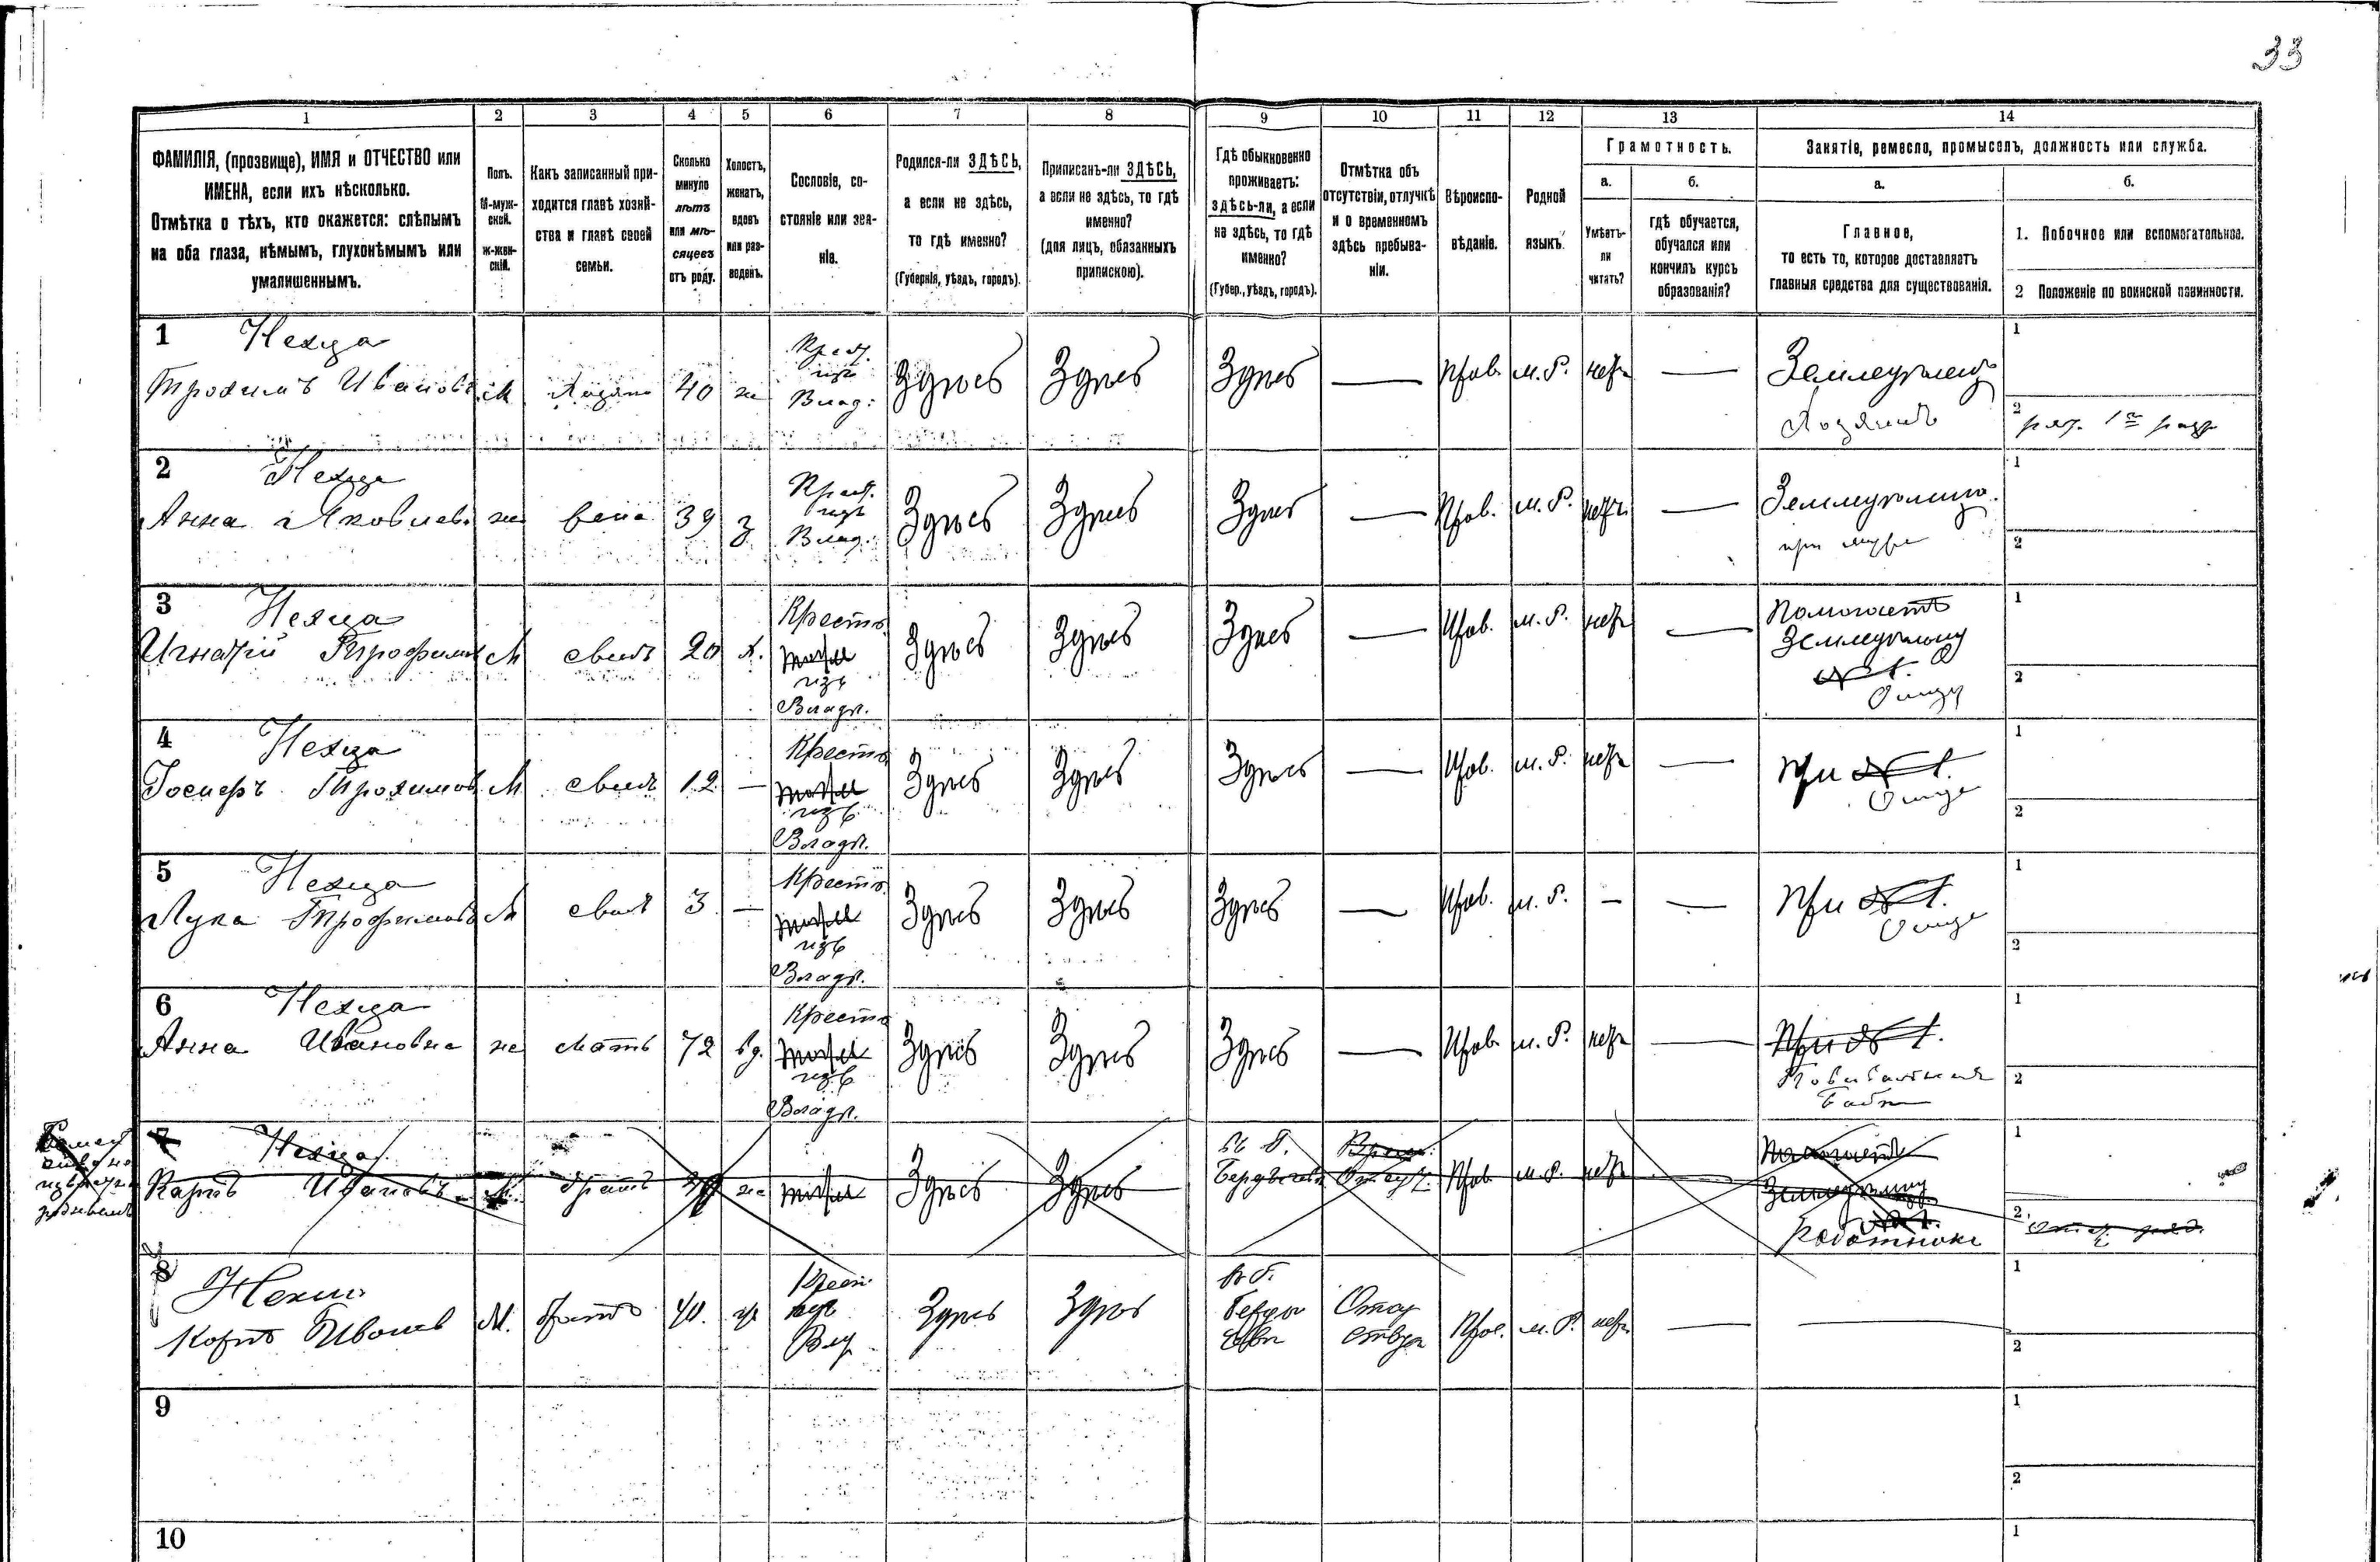 33
1 2 3 4 5 6 7 8 9 10 11 12 13 14
ФАМИЛІЯ, (прозвище), ИМЯ и ОТЧЕСТВО или
ИМЕНА, если ихъ нѣсколько.
Отмѣтка о тѣхъ, кто окажется: слѣпымъ
на оба глаза, нѣмымъ, глухонѣмымъ или
умалишеннымъ.
Полъ.
М-муж-
ской.
ж-жен-
скій.
Какъ записанный при-
ходится главѣ хозяй-
ства и главѣ своей
семьи.
Сколько
минуло
лѣтъ
или мѣ-
сяцевъ
отъ роду.
Холостъ,
женатъ,
вдовъ
или раз-
веденъ.
Сословіе, со-
стояніе или зва-
ніе.
Родился-ли ЗДѢСЬ,
а если не здѣсь,
то гдѣ именно?
(Губернія, уѣздъ, городъ).
Приписанъ-ли ЗДѢСЬ,
а если не здѣсь, то гдѣ
именно?
(для лицъ, обязанныхъ
припискою).
Гдѣ обыкновенно
проживаетъ:
здѣсь-ли, а если
не здѣсь, то гдѣ
именно?
(Губер., уѣздъ, городъ).
Отмѣтка объ
отсутствіи, отлучкѣ
и о временномъ
здѣсь пребыва-
ніи.
Вѣроиспо-
вѣданіе.
Родной
языкъ.
Грамотность.
а.
Умѣетъ-
ли
читать?
б.
гдѣ обучается,
обучался или
кончилъ курсъ
образованія?
Занятіе, ремесло, промыселъ, должность или служба.
а.
Главное,
то есть то, которое доставляетъ
главныя средства для существованія.
б.
1. Побочное или вспомогательное.
2 Положеніе по воинской повинности.
1 Нехца
Трохимъ Ивановъ М Хозяинъ 40 ж Крест. изъ Влад. Здѣсь Здѣсь Здѣсь — Прав. м. Р. нѣтъ — Земледѣлецъ
Хозяинъ
1
2 рат. 1 разр
2 Нехца
Анна Яковлев. ж жена 39 з Крест. изъ Влад. Здѣсь Здѣсь Здѣсь — Прав. м. Р. нѣтъ —
при мужѣ
1
2
3 Нехца
Игнатій Трофимов М сынъ 20 х. Крестъ. изъ Владѣл. Здѣсь Здѣсь Здѣсь — Прав. м. Р. нѣтъ — Помогаетъ
Земледѣльцу
Отцу
1
2
4 Нехца
Трохимов М сынъ 12 — Крестъ. изъ Владѣл. Здѣсь Здѣсь Здѣсь — Прав. м. Р. нѣтъ — При
Отцѣ
1
2
5 Нехца
Лука Трофимовъ М сынъ 3 — Крестъ. изъ Владѣл. Здѣсь Здѣсь Здѣсь — Прав. м. Р. — — При
Отцѣ
1
2
6 Нехца
Анна Ивановна ж мать 72 вд. Крестъ. изъ Владѣл. Здѣсь Здѣсь Здѣсь — Прав. м. Р. нѣтъ —
Повивальная
бабка
1
2
7 Нехца
Карпъ Ивановъ М. братъ ж Здѣсь Здѣсь въ Г. Бердычевѣ Прав. м. Р. нѣтъ — Помогаетъ
Земледѣльцу
Работникъ
1
2
8
Карпъ Иванов М. братъ 40. ж Крест изъ Вл Здѣсь Здѣсь въ Г. Берды чевѣ Отсу ствуе Прав. м. Р. нѣтъ — —
1
2
9
1
2
10
1